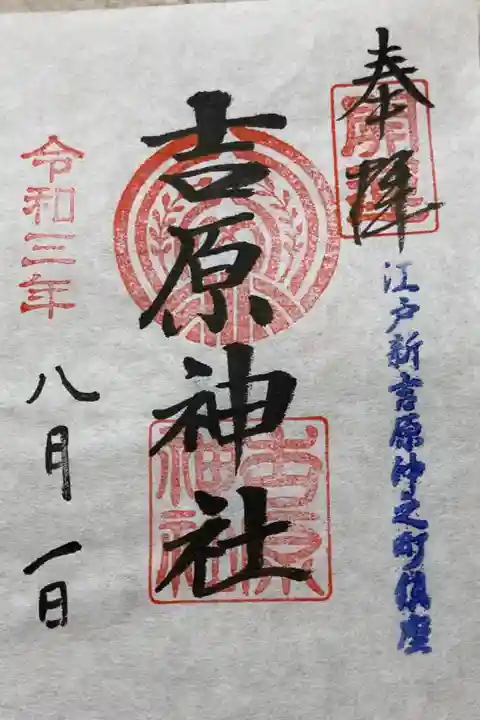 奉拝
開運
江戸新吉原仲之町鎮座
吉原神社
吉原神社
令和三年
八月一日